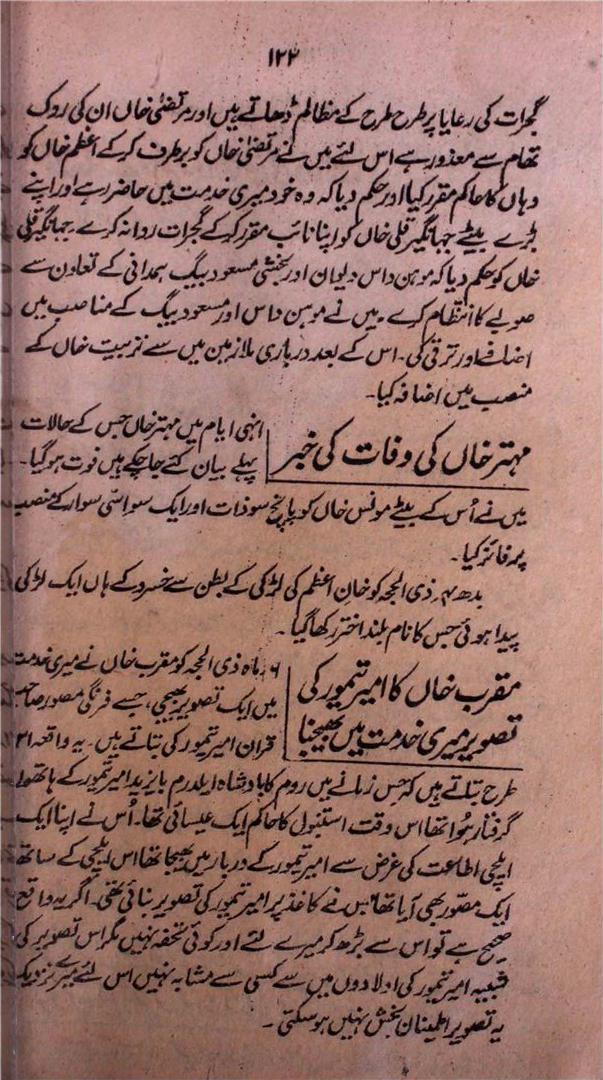 ۱۲۲
گجرات کی رعایا پر طرح طرح کے مظالم ڈھاتے ہیں اور مرتضیٰ خاں ان کی روک
تھام سے معذور ہے اس لئے میں نے مرتضیٰ خاں کو برطرف کر کے اعظم خاں کو
وہاں کا حاکم مقرر کیا اور حکم دیا کہ وہ خود میری خدمت میں حاضر رہے اور اپنے
بڑے بیٹے جہانگیر قلی خاں کو اپنا نائب مقرر کر کے گجرات روانہ کرے۔ جہانگیر قلی
خاں کو حکم دیا کہ موہن داس دیوان اور بخشی مسعود بیگ ہمدانی کے تعاون سے
صوبے کا انتظام کرے۔ میں نے موہن داس اور مسعود بیگ کے مناصب میں
اضافے اور ترقی کی۔ اس کے بعد درباری ملازمین میں سے تربیت خاں کے
منصب میں اضافہ کیا۔
مہتر خاں کی وفات کی خبر
انہی ایام میں مہتر خاں جس کے حالات
پہلے بیان کئے جا چکے ہیں فوت ہو گیا۔
میں نے اُس کے بیٹے مونس خاں کو پانچ سو ذات اور ایک سو اسّی سوار کے منصب
پر فائز کیا۔
بدھ ۴؍ ذی الحجہ کو خانِ اعظم کی لڑکی کے بطن سے خسرو کے ہاں ایک لڑکی
پیدا ہوئی جس کا نام بلند اختر رکھا گیا۔
مقرب خاں کا امیر تیمور کی
تصویر میری خدمت میں بھیجنا
۶؍ ماہ ذی الحجہ کو مقرب خاں نے میری خدمت
میں ایک تصویر بھیجی، جسے فرنگی مصور صاحب
قران امیر تیمور کی بتاتے ہیں۔ یہ واقعہ
طرح بتاتے ہیں کہ جس زمانے میں روم کا بادشاہ ایلدرم بایزید امیر تیمور کے ہاتھوں
گرفتار ہُوا تھا اس وقت استنبول کا حاکم ایک عیسائی تھا۔ اُس نے اپنا ایک
ایلچی اطاعت کی غرض سے امیر تیمور کے دربار میں بھیجا تھا اس ایلچی کے ساتھ
ایک مصّور بھی آیا تھا جس نے کاغذ پر امیر تیمور کی تصویر بنائی تھی۔ اگر یہ واقع
صحیح ہے تو اس سے بڑھ کر میرے لئے اور کوئی تحفہ نہیں مگر اس تصویر کی
شبیہ امیر تیمور کی اولادوں میں سے کسی سے مشابہ نہیں اس لئے میرے نزدیک
یہ تصویر اطمینان بخش نہیں ہو سکتی۔